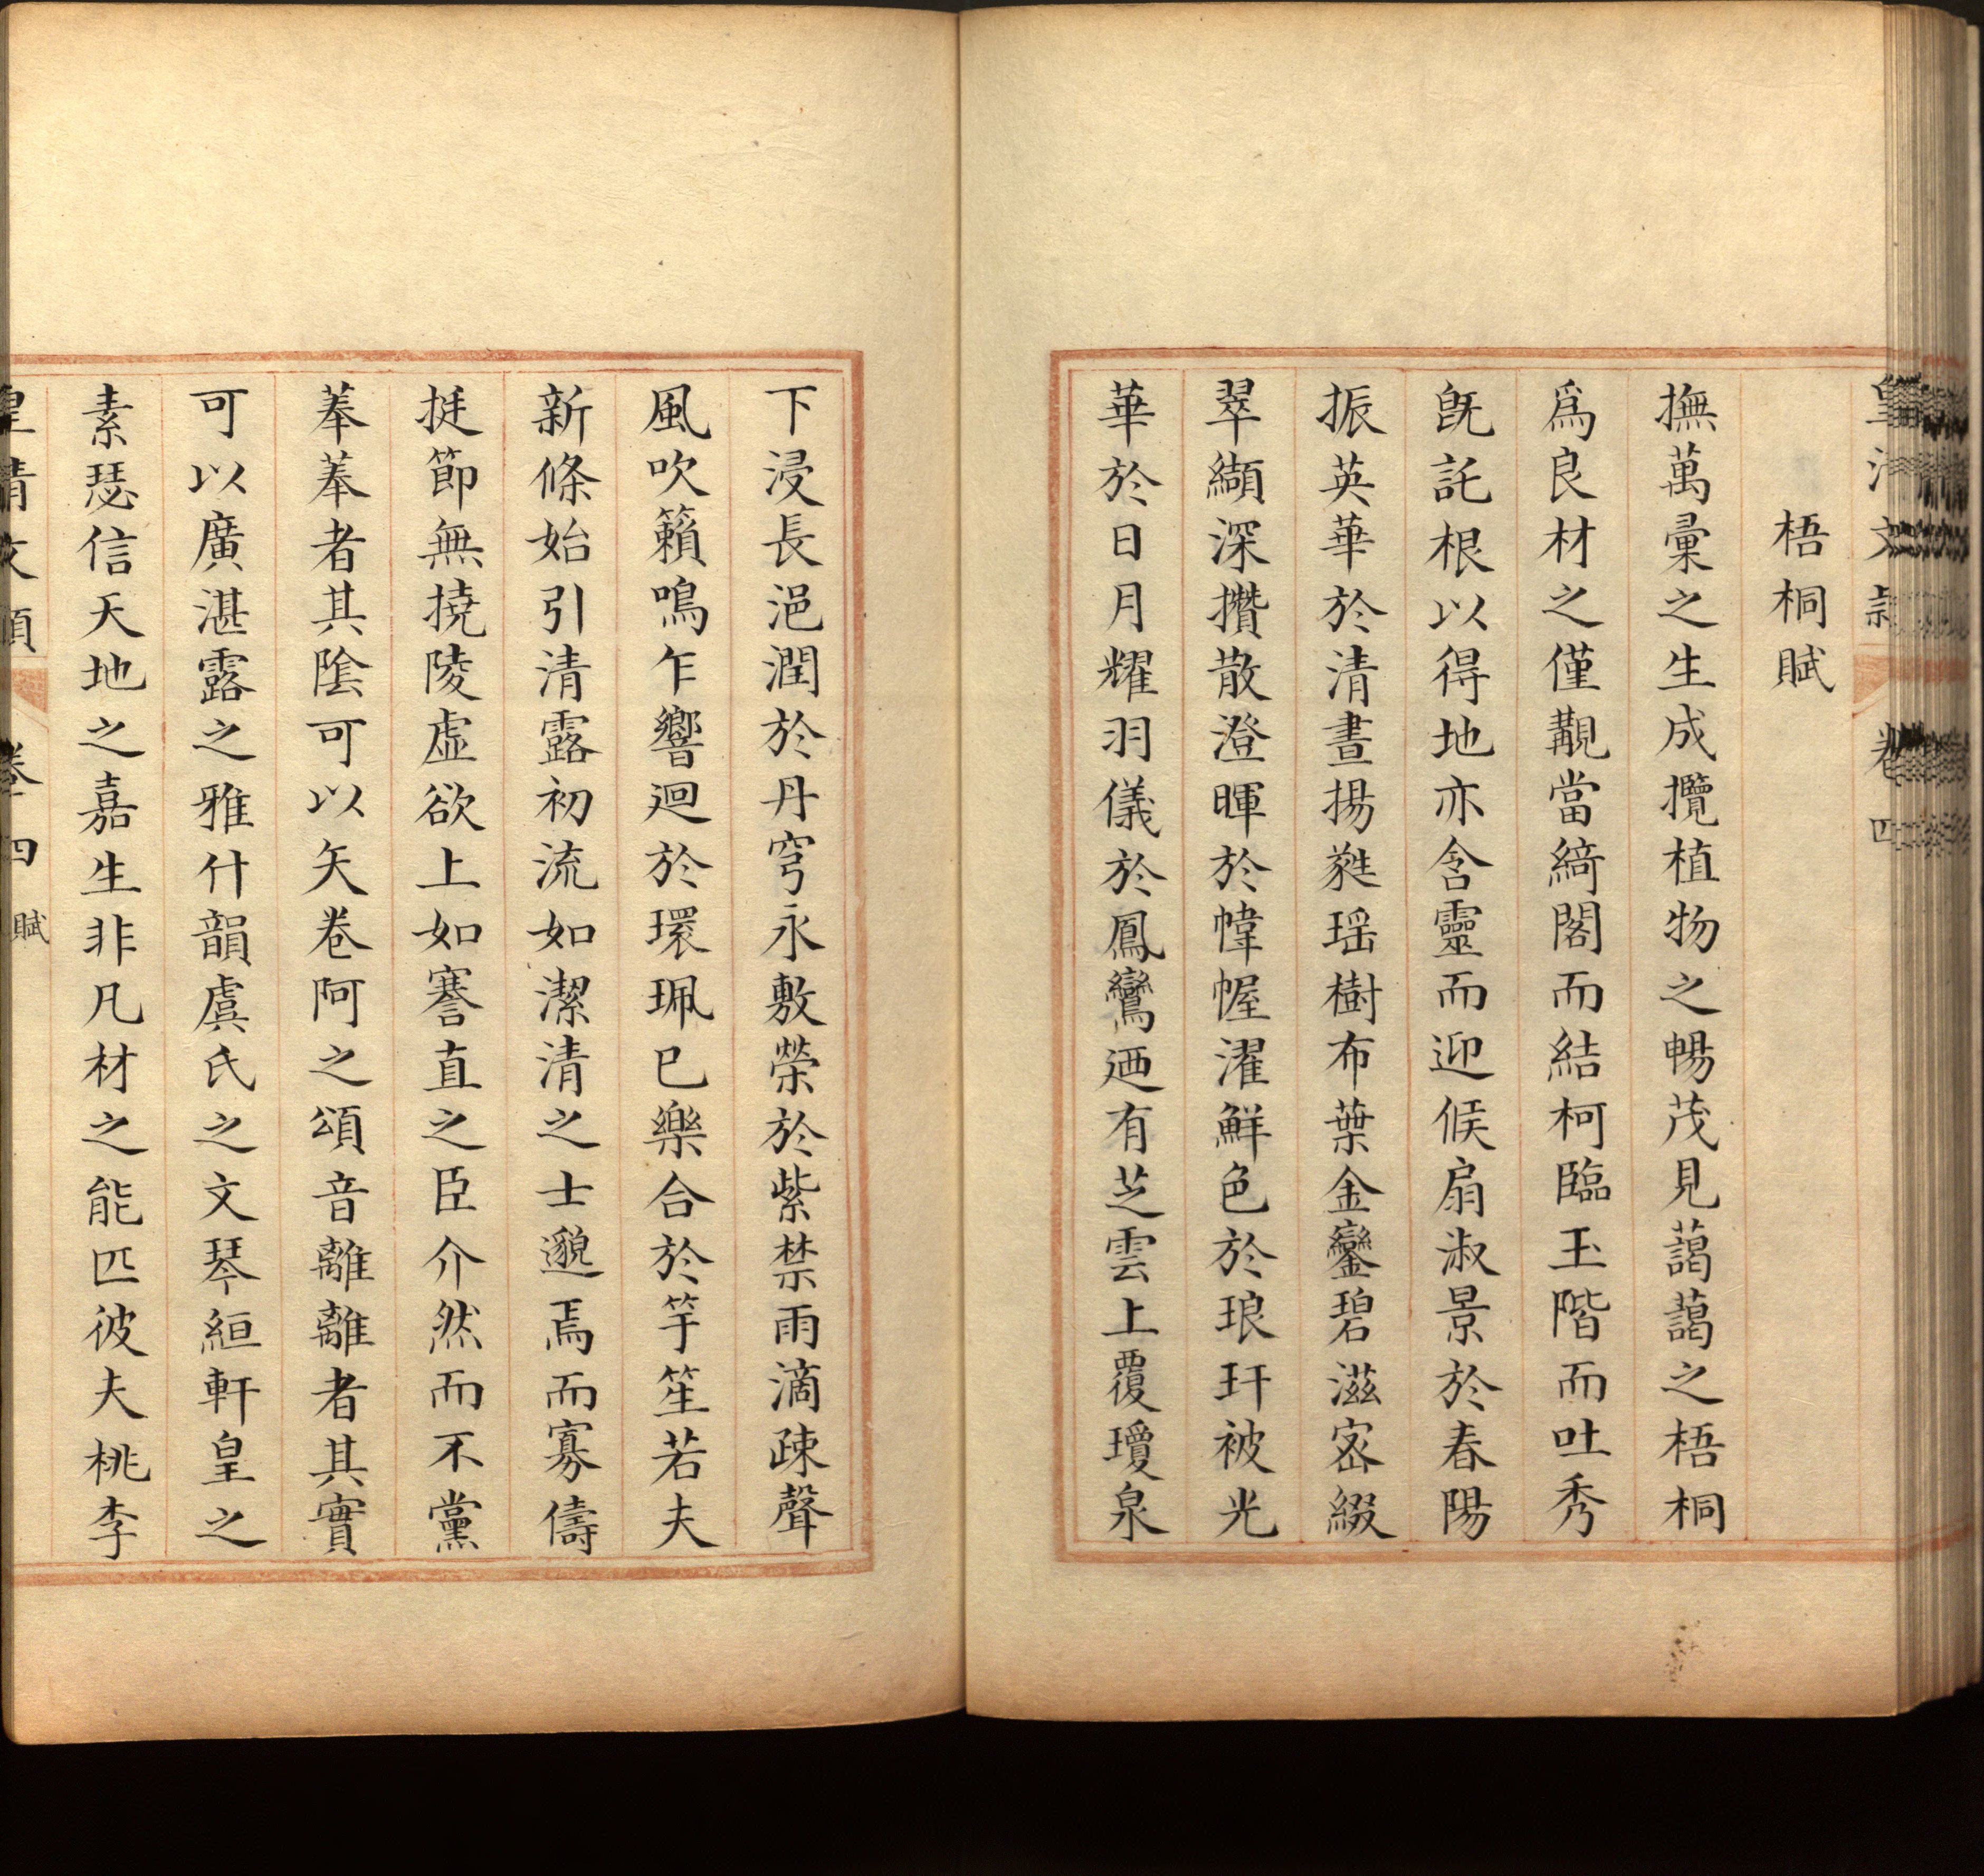 梧桐賦
撫萬彚之生成攬植物之暢茂見藹藹之梧桐
爲良材之僅覯當綺閣而結柯臨玉階而吐秀
旣託根以得地亦含靈而迎候扇淑景於春陽
振英華於清晝揚蕤瑶樹布葉金鑾碧滋宻綴
翠纈深攢散澄暉於幃幄濯鮮色於琅玕被光
華於日月耀羽儀於鳳鸞迺有芝雲上覆瓊泉
下浸長浥潤於丹穹永敷榮於紫禁雨滴疎聲
風吹籟鳴乍響迴於環珮已樂合於竽笙若夫
新條始引清露初流如潔清之士邈焉而寡儔
挺節無撓陵虚欲上如謇直之臣介然而不黨
菶菶者其陰可以矢卷阿之頌音離離者其實
可以廣湛露之雅什韻虞氏之文琴絙軒皇之
素瑟信天地之嘉生非凡材之能匹彼夫桃李
皇清文頴 卷四 賦